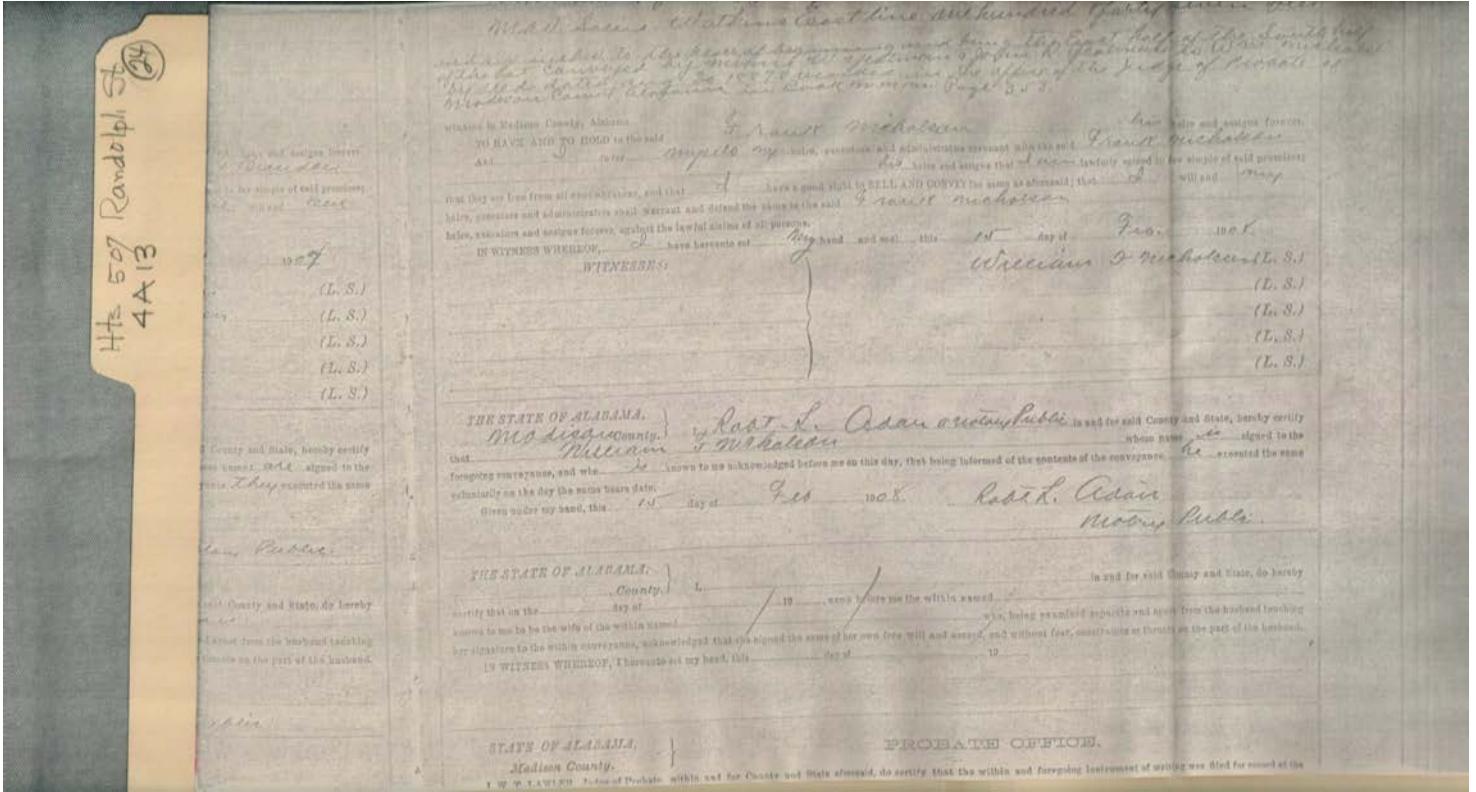 Hts 507 Randolph St
24
4A13
East line one hundred
beginning and being the East half of the South half
of the lot conveyed by
by deed dated 1887 & recorded in the office of the Judge of Probate of
Madison County Alabama in Book Page 353
situate in Madison County, Alabama.
TO HAVE AND TO HOLD to the said Frank Nicholson his heirs and assigns forever.
And I do for myself my heirs, executors and administrators covenant with the said Frank Nicholson
his heirs and assigns that I am lawfully seized in fee simple of said premises;
that they are free from all encumbrances, and that I have a good right to SELL AND CONVEY the same as aforesaid; that I will and my
heirs, executors and administrators shall warrant and defend the same to the said Frank Nicholson
heirs, executors and assigns forever, against the lawful claims of all persons.
IN WITNESS WHEREOF, I have hereunto set my hand and seal this 1st day of Feb. 1908.
WITNESSES:
William Nicholson (L. S.)
(L. S.)
(L. S.)
(L. S.)
(L. S.)
THE STATE OF ALABAMA,
Madison County. I, Robt. L. Adair a Notary Public in and for said County and State, hereby certify
that William Nicholson whose name is signed to the
foregoing conveyance, and who is known to me acknowledged before me on this day, that being informed of the contents of the conveyance, he executed the same
voluntarily on the day the same bears date.
Given under my hand, this 1st day of Feb 1908. Robt L. Adair
Notary Public.
THE STATE OF ALABAMA,
County. I, in and for said County and State, do hereby
certify that on the day of 19 came before me the within named
known to me to be the wife of the within named who, being examined separate and apart from the husband touching
her signature to the within conveyance, acknowledged that she signed the same of her own free will and accord, and without fear, constraints or threats on the part of the husband.
IN WITNESS WHEREOF, I hereunto set my hand, this day of 19
STATE OF ALABAMA,
Madison County.
PROBATE OFFICE.
I, W. T. LAWLER, Judge of Probate, within and for County and State aforesaid, do certify that the within and foregoing instrument of writing was filed for record at the
heirs and assigns forever.
in fee simple of said premises;
1907
(L. S.)
(L. S.)
(L. S.)
(L. S.)
(L. S.)
County and State, hereby certify
names are signed to the
they executed the same
Public.
said County and State, do hereby
apart from the husband touching
threats on the part of the husband.